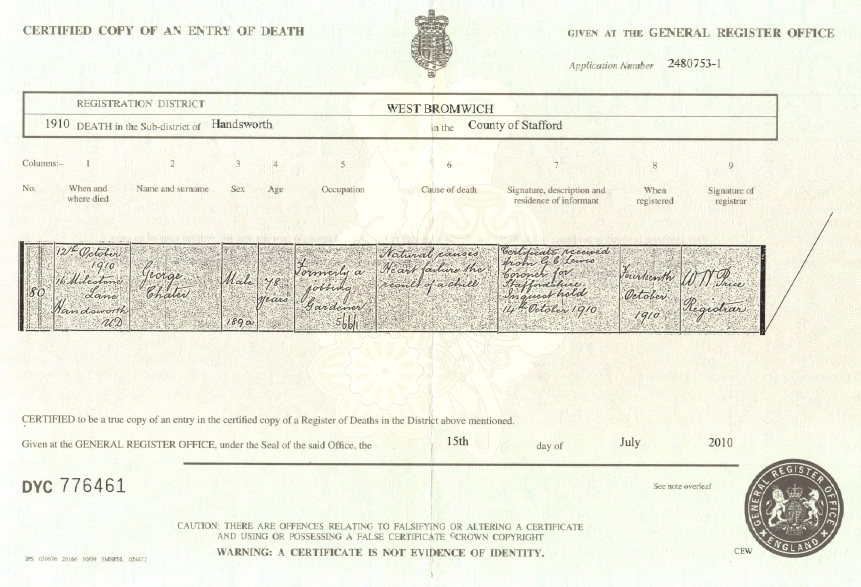 CERTIFIED COPY OF AN ENTRY OF DEATH
GIVEN AT THE GENERAL REGISTER OFFICE
Application Number 2480753-1
REGISTRATION DISTRICT WEST BROMWICH
1910 DEATH in the Sub-district of Handsworth in the County of Stafford
Columns:- 1 2 3 4 5 6 7 8 9
No. When and where died Name and surname Sex Age Occupation Cause of death Signature, description and residence of informant When registered Signature of registrar
80
12th October
1910
16 Milestone
Lane
Handsworth
UD
George
Chater
Male
189a
78
years
Formerly a
jobbing
Gardener
Natural causes
Heart failure the
result of a chill
Certificate received
from G C Lewis
Coroner for
Staffordshire
Inquest held
14th October 1910
Fourteenth
October
1910
W N Price
Registrar
CERTIFIED to be a true copy of an entry in the certified copy of a Register of Deaths in the District above mentioned.
Given at the GENERAL REGISTER OFFICE, under the Seal of the said Office, the 15th day of July 2010
DYC 776461
See note overleaf
GENERAL REGISTER OFFICE
ENGLAND
CAUTION: THERE ARE OFFENCES RELATING TO FALSIFYING OR ALTERING A CERTIFICATE
AND USING OR POSSESSING A FALSE CERTIFICATE ©CROWN COPYRIGHT
WARNING: A CERTIFICATE IS NOT EVIDENCE OF IDENTITY.
CEW